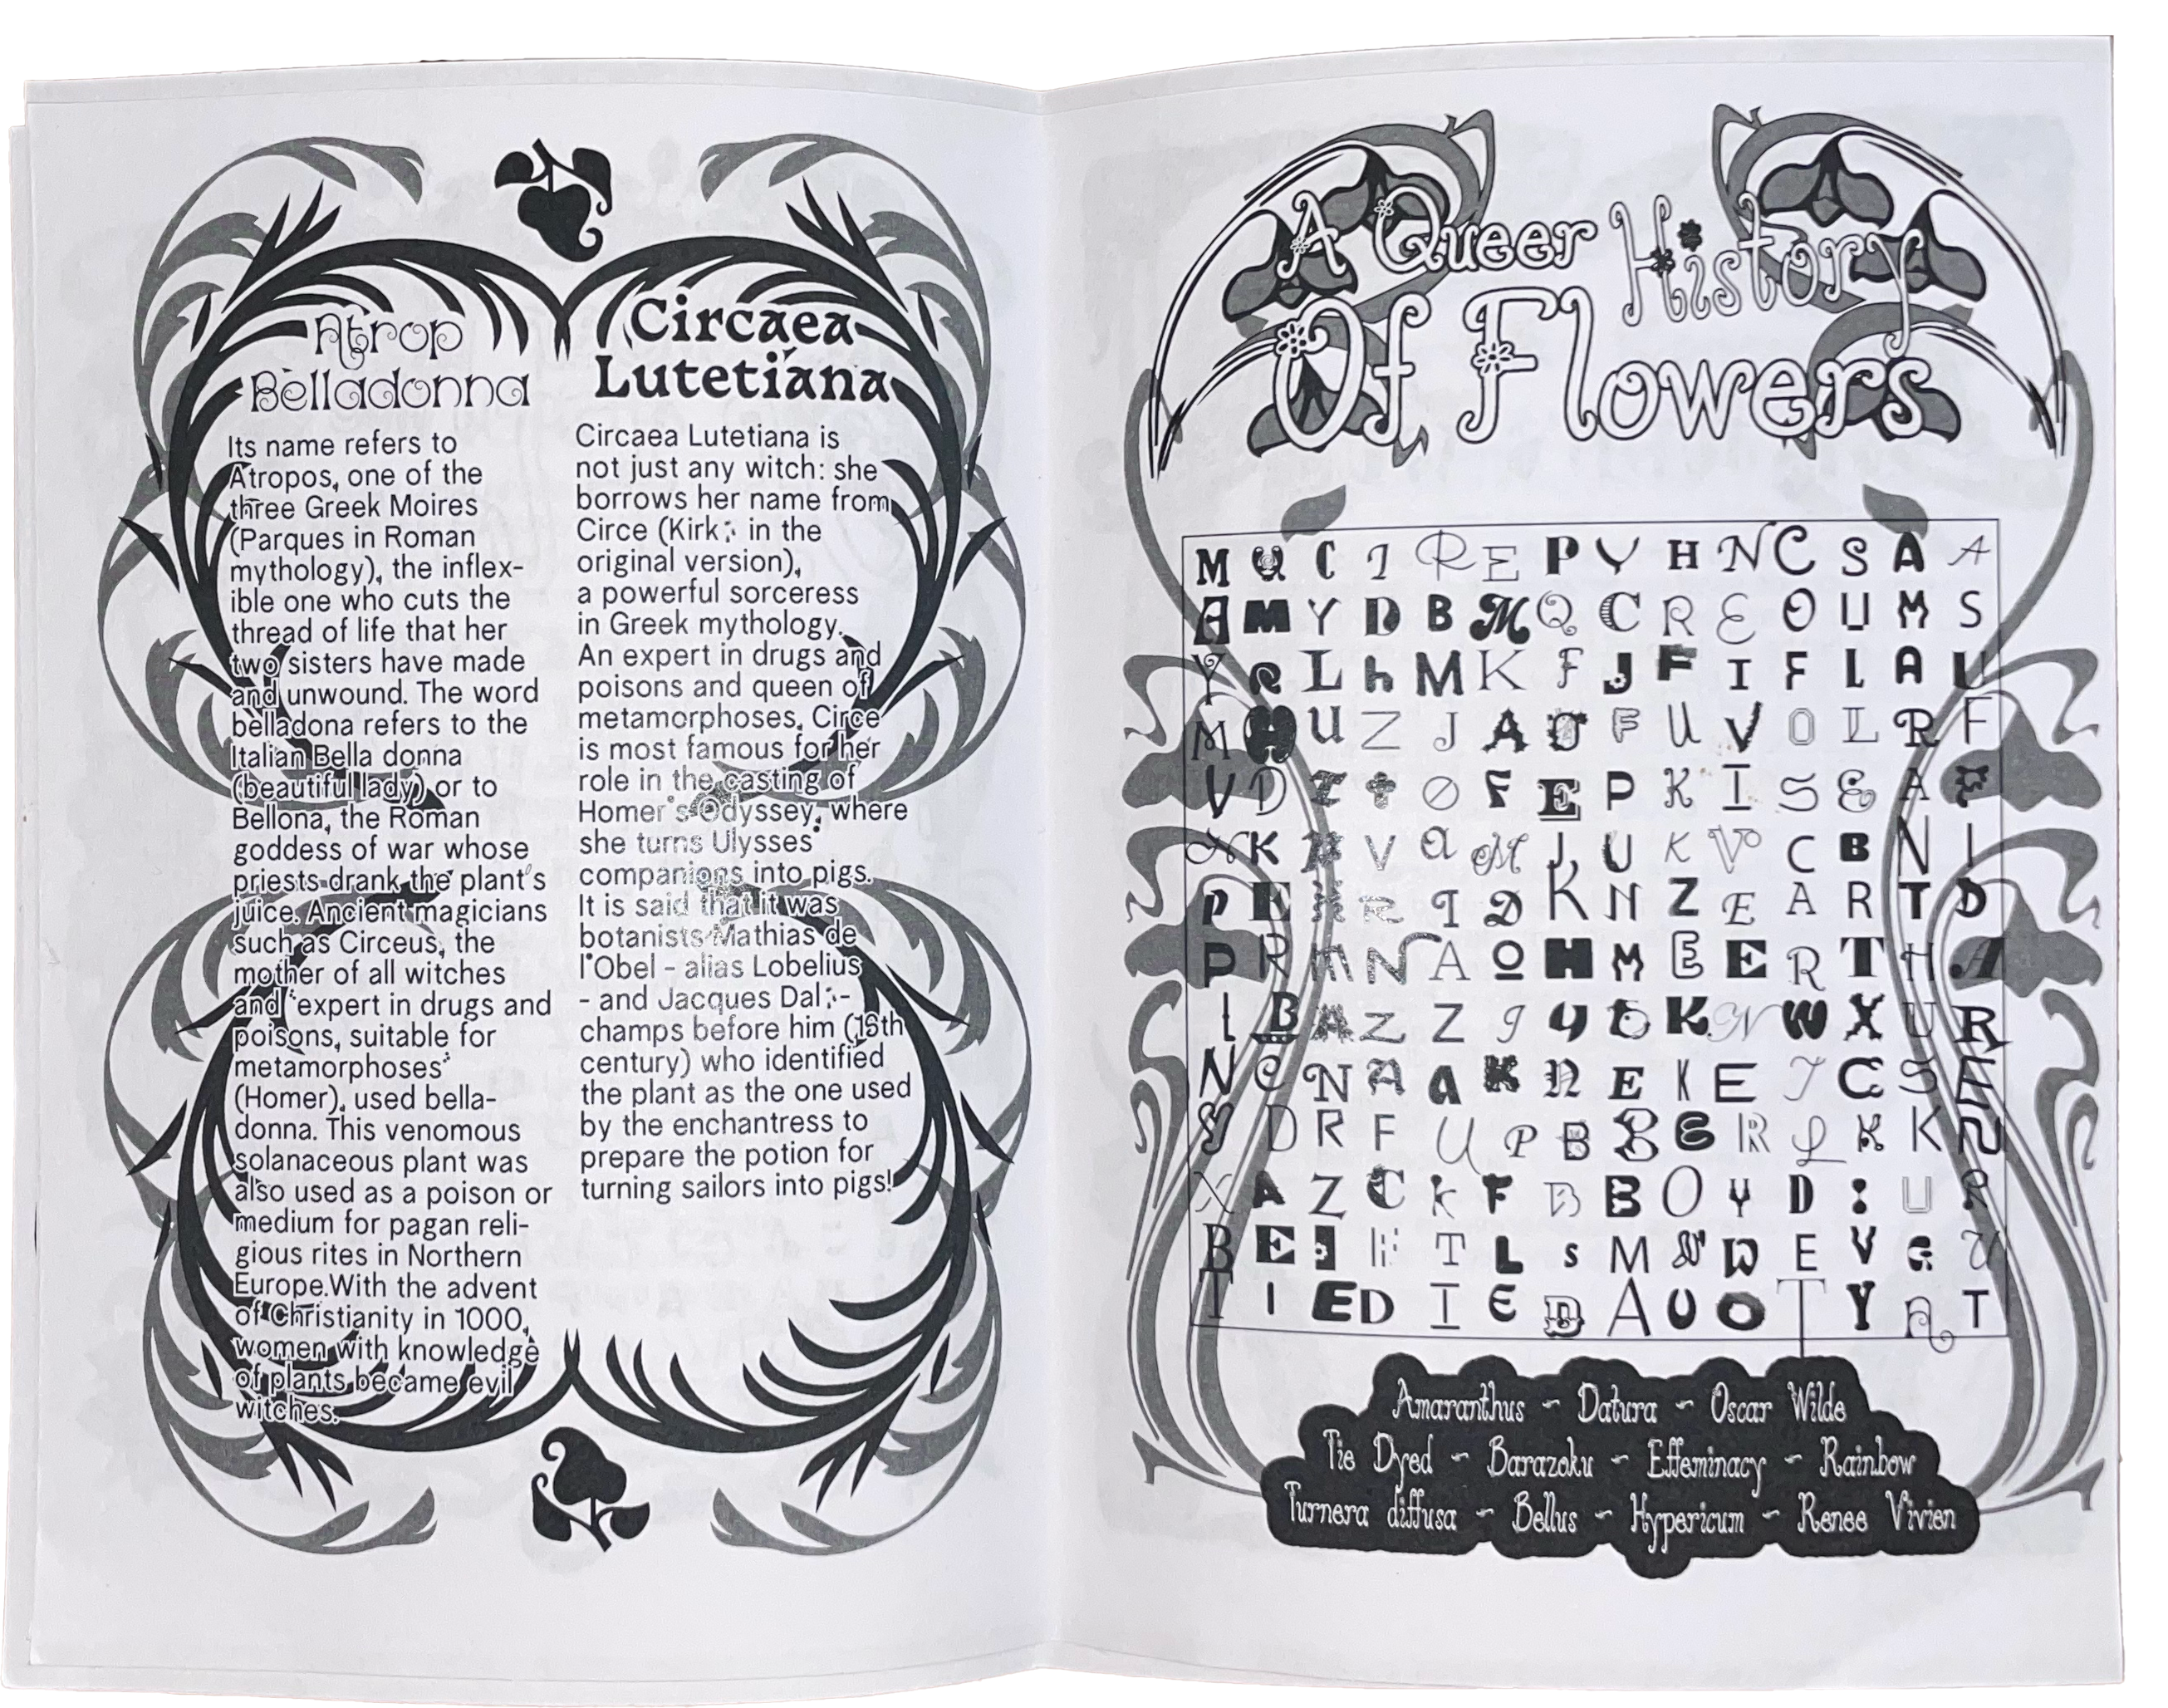 Atrop
Belladonna
Its name refers to
Atropos, one of the
three Greek Moires
(Parques in Roman
mythology), the inflex-
ible one who cuts the
thread of life that her
two sisters have made
and unwound. The word
belladona refers to the
Italian Bella donna
(beautiful lady) or to
Bellona, the Roman
goddess of war whose
priests drank the plant's
juice. Ancient magicians
such as Circeus, the
mother of all witches
and "expert in drugs and
poisons, suitable for
metamorphoses"
(Homer), used bella-
donna. This venomous
solanaceous plant was
also used as a poison or
medium for pagan reli-
gious rites in Northern
Europe.With the advent
of Christianity in 1000,
women with knowledge
of plants became evil
witches.
Circaea
Lutetiana
Circaea Lutetiana is
not just any witch: she
borrows her name from
Circe (Kirk in the
original version),
a powerful sorceress
in Greek mythology.
An expert in drugs and
poisons and queen of
metamorphoses, Circe
is most famous for her
role in the casting of
Homer's Odyssey, where
she turns Ulysses'
companions into pigs.
It is said that it was
botanists Mathias de
l'Obel - alias Lobelius
- and Jacques Dal-
champs before him (16th
century) who identified
the plant as the one used
by the enchantress to
prepare the potion for
turning sailors into pigs!
A Queer History
Of Flowers
M U C I R E P Y H N C S A A
A M Y D B M Q C R E O U M S
Y R L h M K F J F I F L A U
M H U Z J A O F U V O L R F
V D Z t O F E P K I S E A F
K V a M J U K V C B N I
P E R I D K N Z E A R T D
P R M N A O H M E E R T H A
L B A Z Z J Y t K N W X U R
N C N A a K n E K E I C S E
Y D R F U P B B E R L K K N
X A Z C k F B B O Y D : U R
B E H T L s M N W E V e U
T I E D I E D A U O T Y A T
Amaranthus ~ Datura ~ Oscar Wilde
Tie Dyed ~ Barazoku ~ Effeminacy ~ Rainbow
Turnera diffusa ~ Bellus ~ Hypericum ~ Renee Vivien